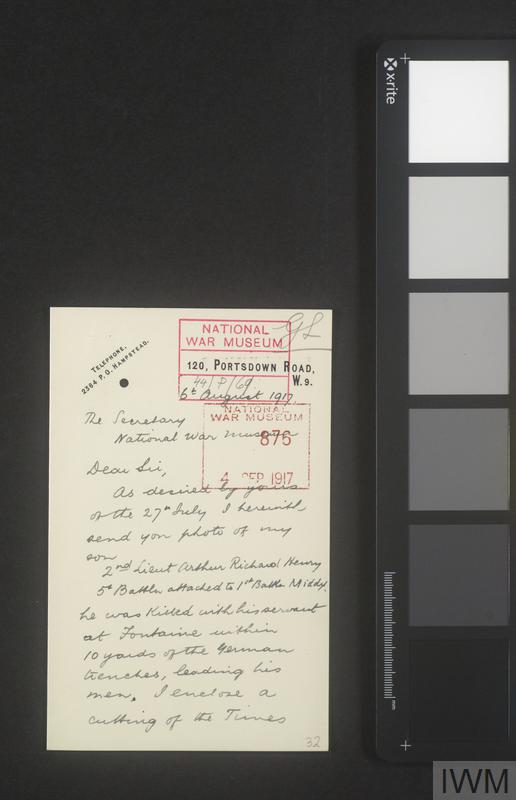 x·rite
GL
NATIONAL
WAR MUSEUM
TELEPHONE,
2364 P.O. HAMPSTEAD.
120, PORTSDOWN ROAD,
W.9.
44/P/69
6th August 1917.
NATIONAL
WAR MUSEUM
876
4 SEP 1917
The Secretary
National War Museum
Dear Sir,
As desired by yours
of the 27th July I herewith
send you photo of my
son
2nd Lieut Arthur Richard Henry
5th Battln attached to 1st Battln Middx.
he was killed with his servant
at Fontaine within
10 yards of the German
trenches, leading his
men. I enclose a
cutting of the Times
32
mm
IWM